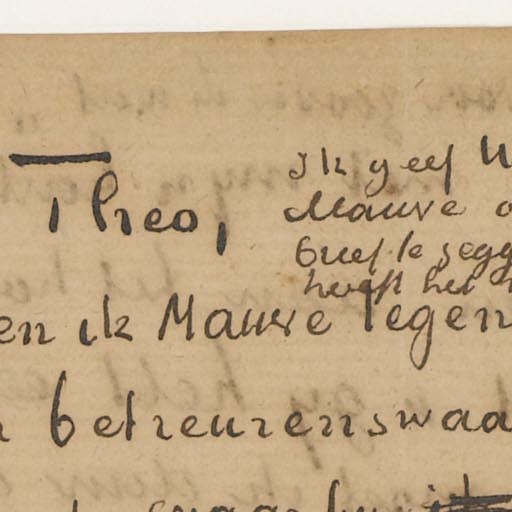 Theo,
Ik geef U
Mauve
brief te zegg
heeft het
en ik Mauve tegen
betreurenswaa